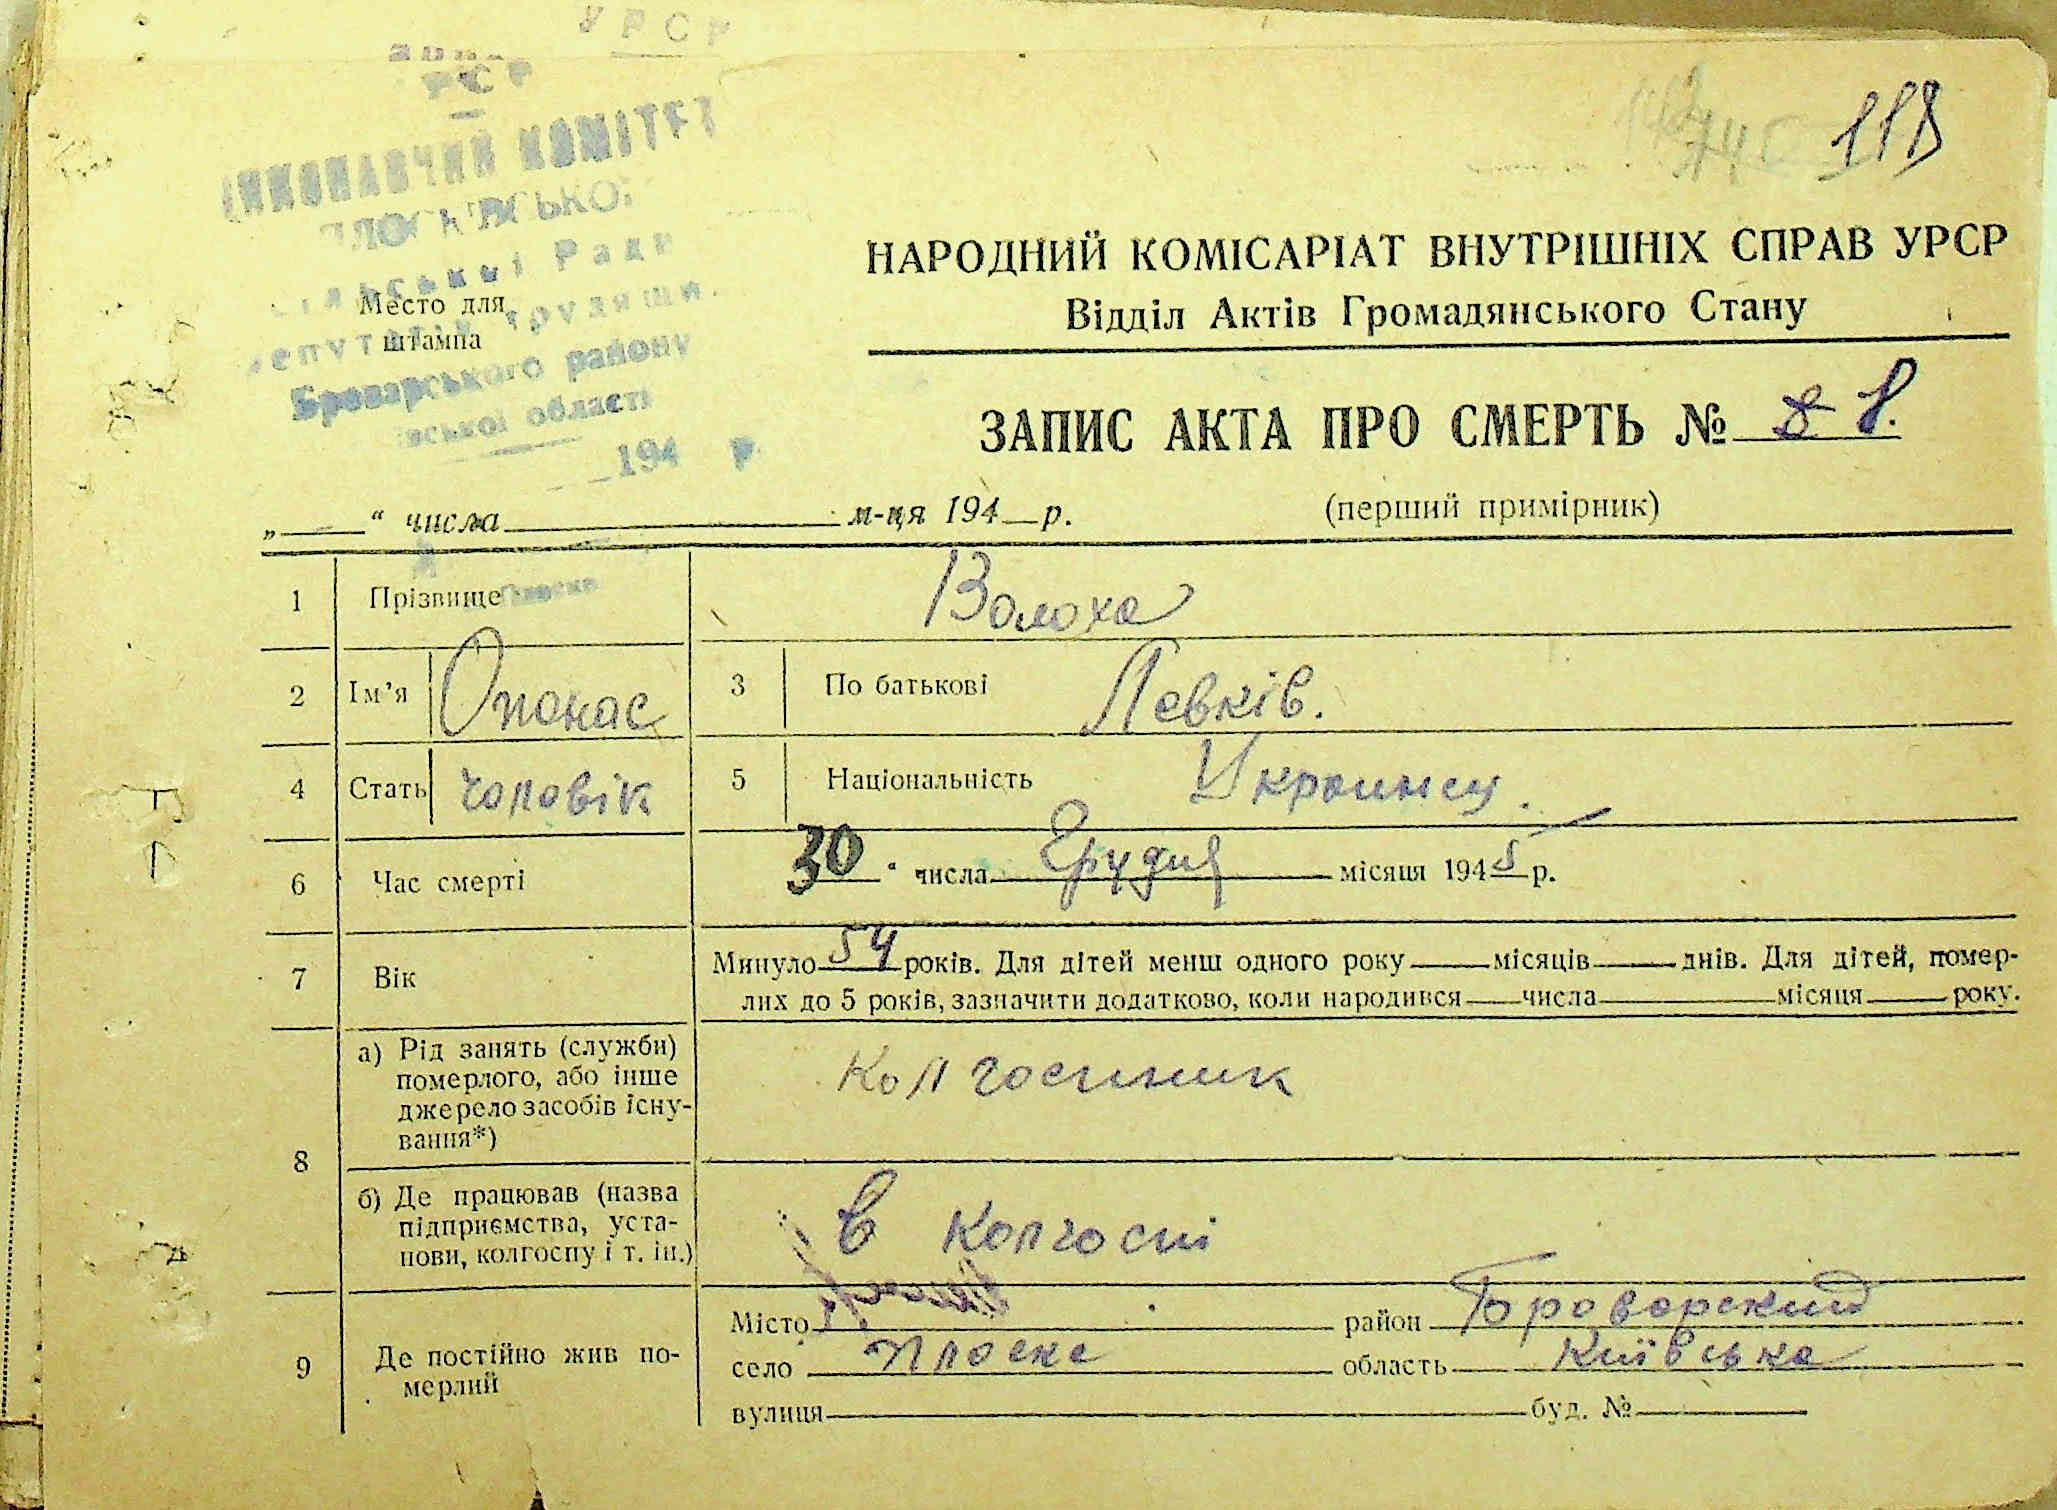 УРСР
РСР
ВИКОНАВЧИЙ КОМІТЕТ
ПЛОСКІВСЬКОЇ
сільської Ради
депутатів трудящих
Броварського району
вської області
194 р
118
НАРОДНИЙ КОМІСАРІАТ ВНУТРІШНІХ СПРАВ УРСР
Відділ Актів Громадянського Стану
Место для
штампа
ЗАПИС АКТА ПРО СМЕРТЬ № 8 8.
„ “ числа м-ця 194 р. (перший примірник)
1 Прізвище Волоха
2 Ім’я Опонас 3 По батькові Левків.
4 Стать чоловік 5 Національність Украинец.
6 Час смерті 30 " числа Грудня місяця 1945 р.
7 Вік Минуло 54 років. Для дітей менш одного року місяців днів. Для дітей, помер-
лих до 5 років, зазначити додатково, коли народився числа місяця року.
8 а) Рід занять (служби)
померлого, або інше
джерело засобів існу-
вання*) колгоспник
б) Де працював (назва
підприємства, уста-
нови, колгоспу і т. ін.) в колгоспі
9 Де постійно жив по-
мерлий
Місто район Броварский
село Плоске область Київська
вулиця буд. №